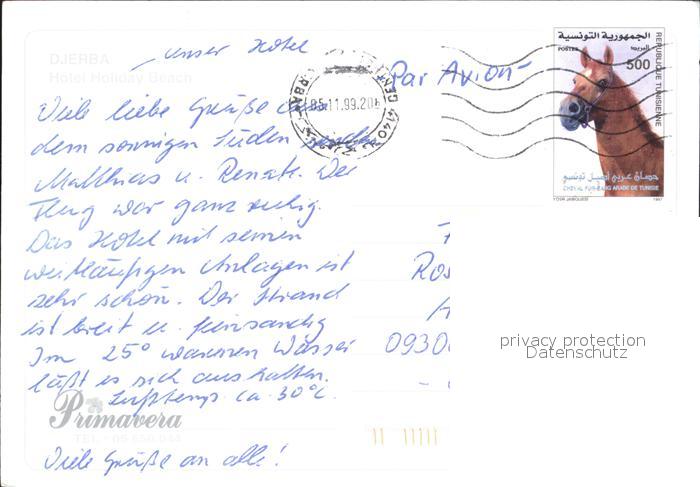 unser Hotel
DJERBA
Hotel Holiday Beach
Par Avion
Viele liebe Grüße aus
dem sonnigen Süden senden
Matthias u. Renate. Der
Flug war ganz ruhig.
Das Hotel mit seinen
weitläufigen Anlagen ist
sehr schön. Der Strand
ist breit u. feinsandig
Im 25° warmen Wasser
läßt es sich aushalten.
Lufttemp. ca. 30°C.
Primavera
TEL.
Viele Grüße an alle!
05.11.99
4140
الجمهورية التونسية
POSTES
البريد
500
REPUBLIQUE TUNISIENNE
حصان عربي أصيل تونسي
CHEVAL PUR-SANG ARABE DE TUNISIE
1997
Ros
0930
privacy protection
Datenschutz